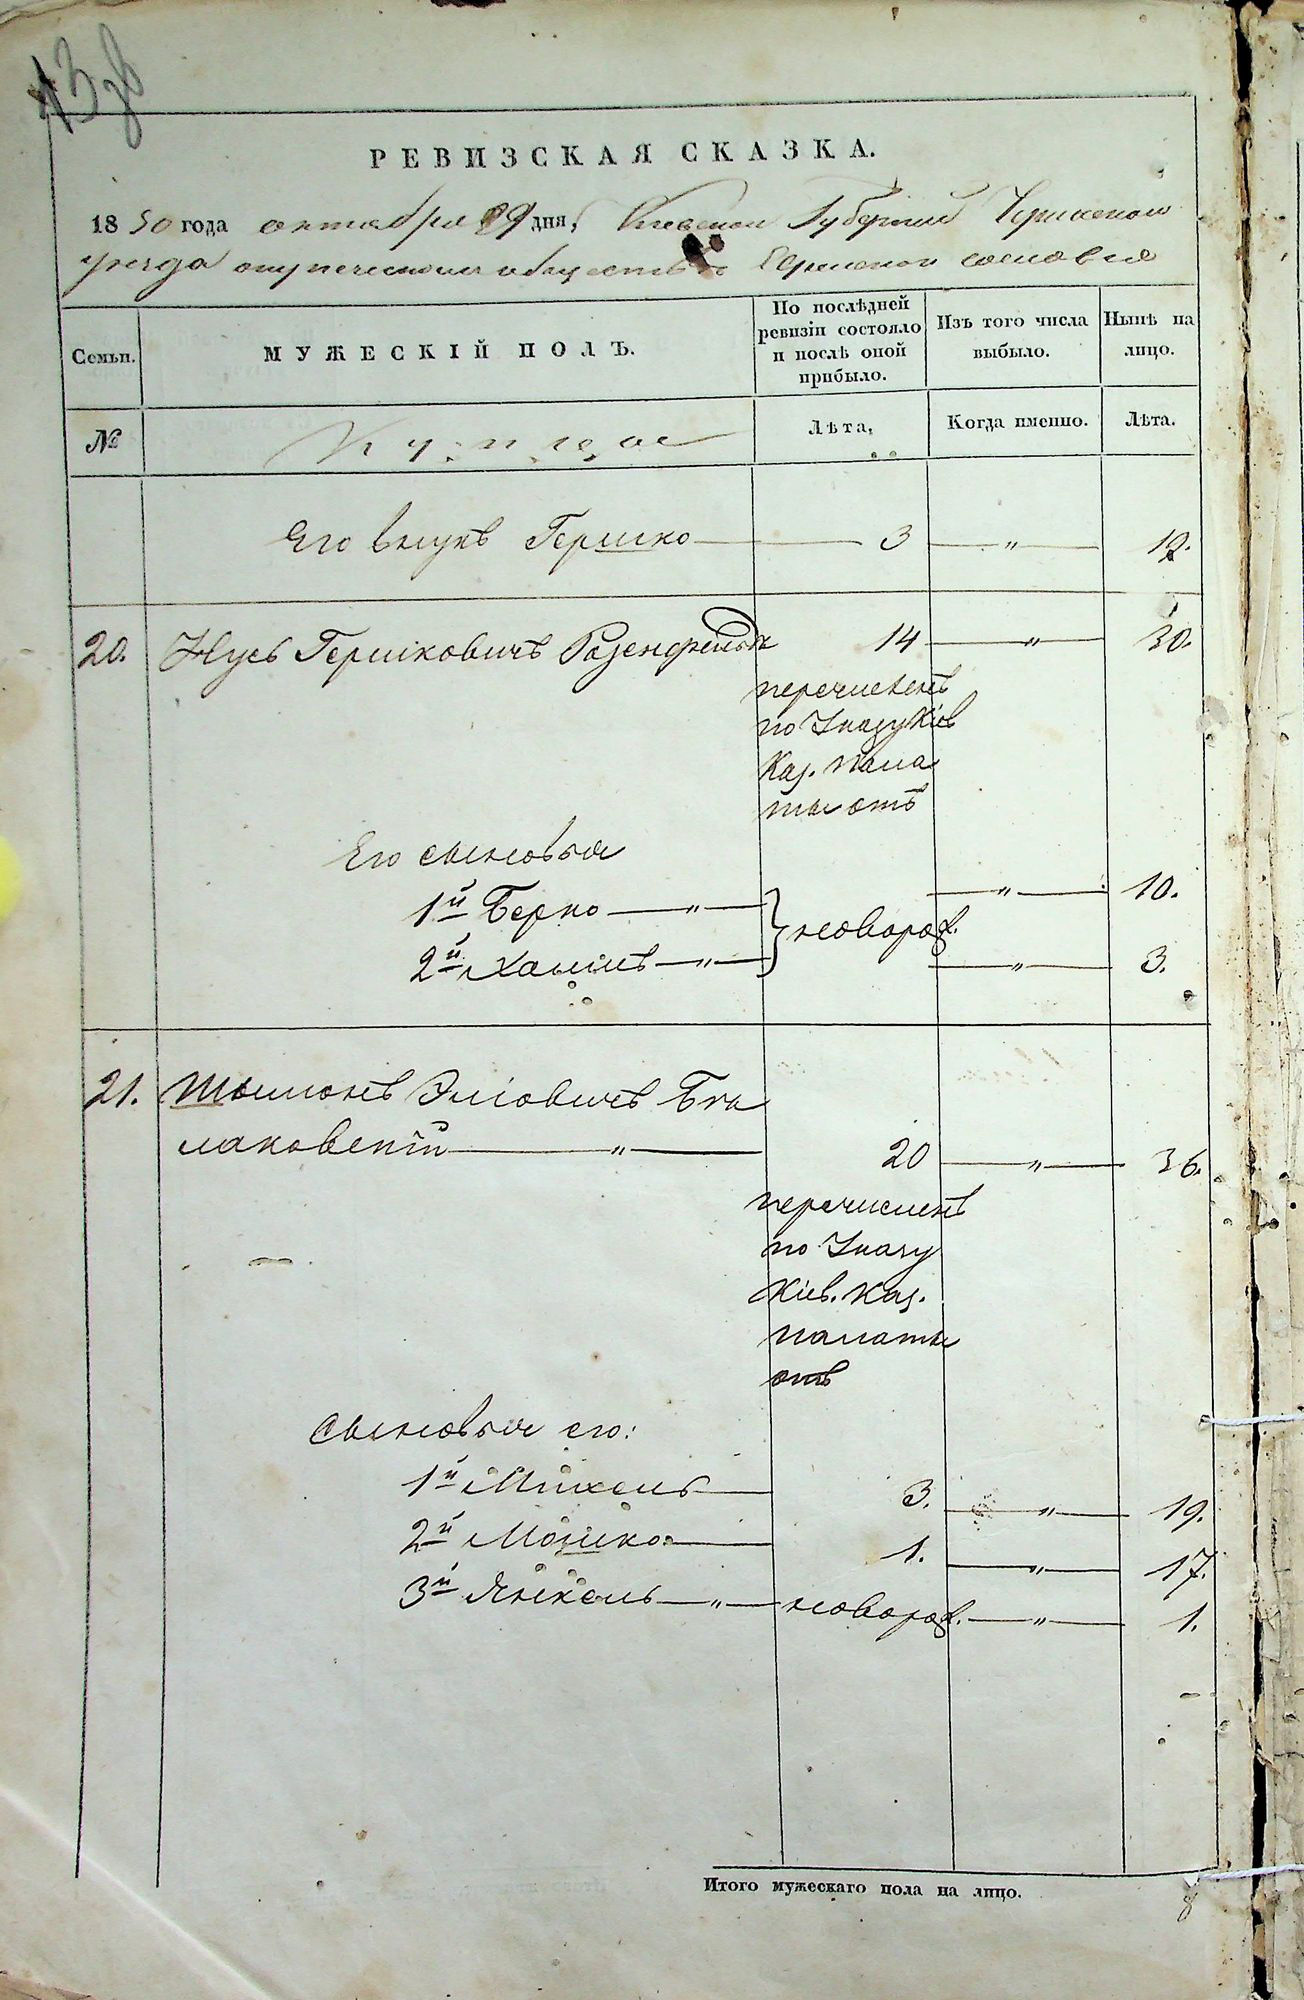 13 об
РЕВИЗСКАЯ СКАЗКА.
1850 года октября 29 дня, Киевской Губернии Черкаского
уезда о купеческом обществе Еврейского сословия
Семьи.
МУЖЕСКІЙ ПОЛЪ.
По послѣдней ревизіи состояло и послѣ оной прибыло.
Изъ того числа выбыло.
Нынѣ на лицо.
№
Купцов
Лѣта,
Когда именно.
Лѣта.
Его внукъ Гершко 3 — " — 19.
20. Нусь Гершковичъ Розенфельдъ 14 — " — 30.
перечисленъ
по Указу Кіев
Каз. Пала
ты отъ
Его сыновья
1й Берко — " — — " — 10.
новорож.
2й Хаимъ — " — — " — 3.
21. Шымонъ Эліовичъ Бѣ
лаковскій — " — 20 — " — 36.
перечисленъ
по Указу
Кіев. Каз.
палаты
отъ
Сыновья его:
1й Михель 3. — " — 19.
2й Мошко 1. — " — 17.
3й Янкель — " — новорож. — " — 1.
Итого мужескаго пола на лицо.